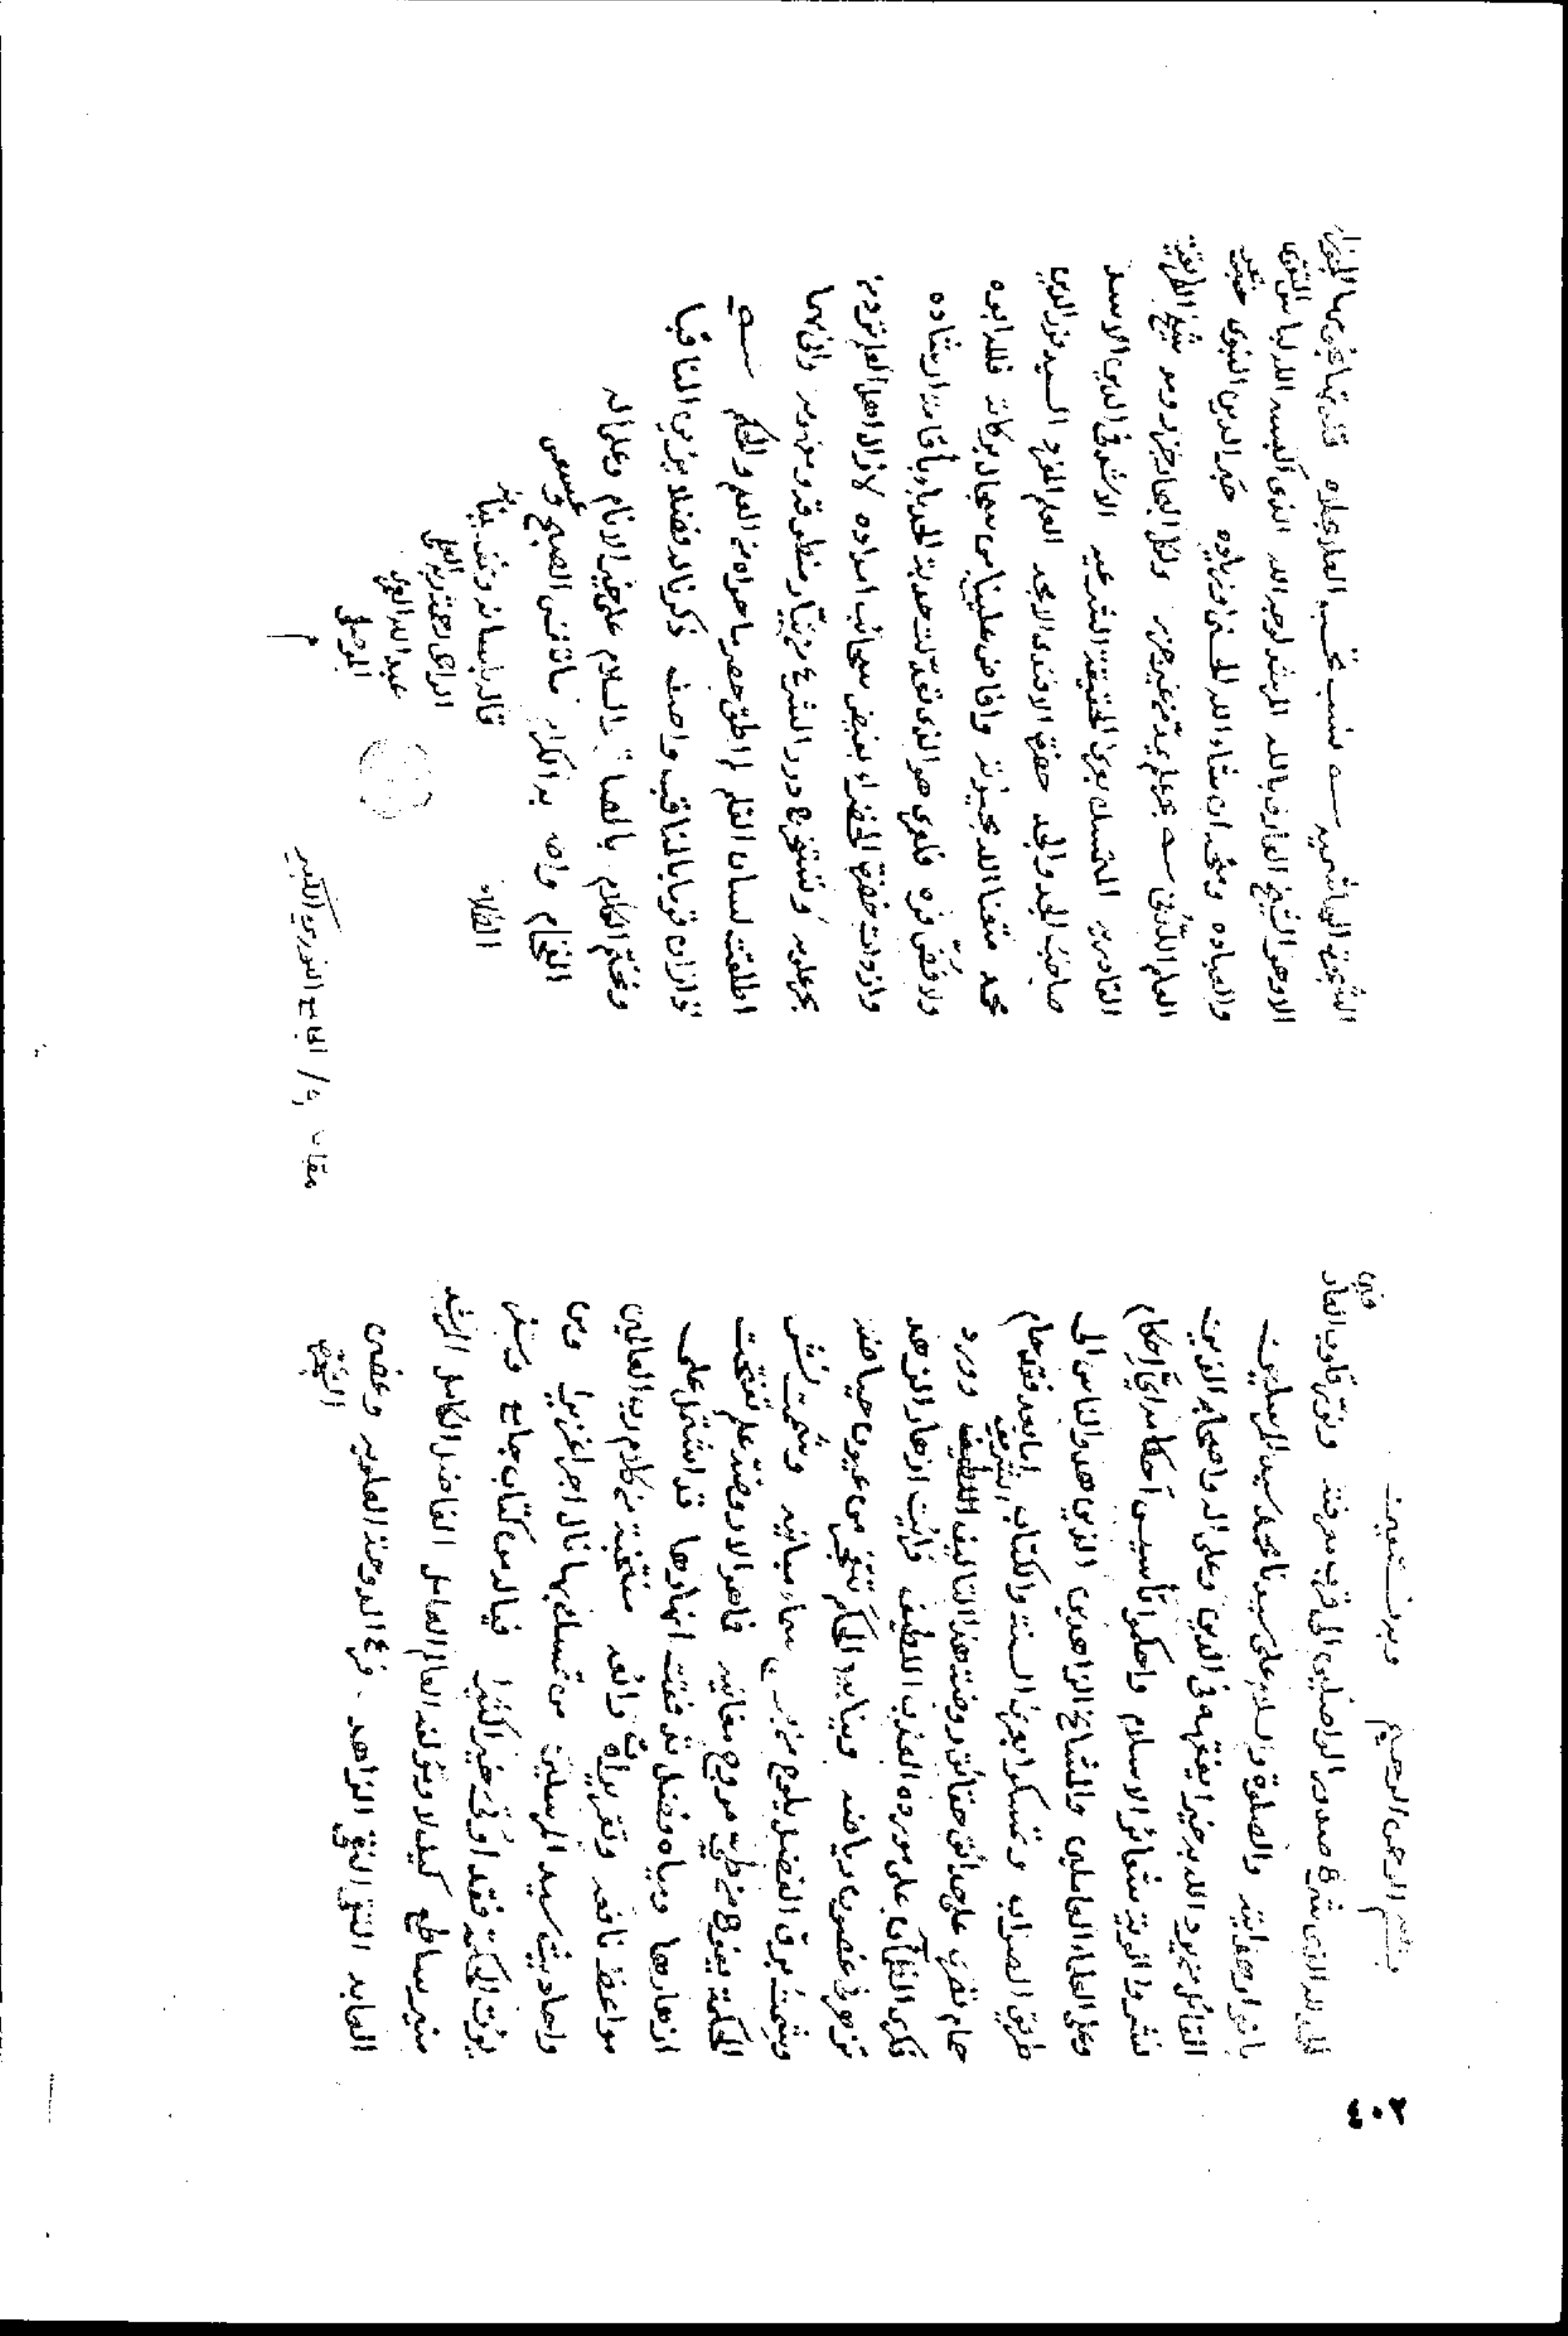 ٤٠٢
بسم الله الرحمن الرحيم وبه نستعين
الحمد لله الذي شرح صدور الواصلين الى قرب معرفته ونور قلوب العارفين
بانوار هدايته والصلوة والسلام على سيدنا محمد سيد المرسلين
القائل من يرد الله به خيرا يفقهه في الدين وعلى آله واصحابه الذين
نشروا الوية شعائر الاسلام واحكموا تأسيس احكامه اي احكام
وعلى العلماء العاملين والمشايخ الزاهدين الذين هدوا الناس الى
طريق الصواب وتمسكوا بعرى السنة والكتاب اما بعد فقد حام
حمام نظري على حدائق حقائق روضة هذا التأليف الشريف وورد
فكري الظمآن على مورده العذب اللطيف فرأيت ازهار الزهد
تزهو في غصون رياضه وينابيع الحكم تتفجر من عيون حياضه
وشمت برق الفضل يلوح من سماء مبانيه وشممت نشر
الحكمة يفوح من طي مروج معانيه فاهو الا روضة علم تفتحت
ازهارها ومياه فضل تدفقت انهارها قد اشتمل على
مواعظ نافعه وتقريرات رائعه منتخبة من كلام رب العالمين
واحاديث سيد المرسلين من تمسك بها نال اجرا غزيرا ومن
يؤت الحكمة فقد اوتي خيرا كثيرا فيا له من كتاب جامع وسفر
منير ساطع كيف لا ومؤلفه العالم العامل الفاضل الكامل المرشد
العابد التقي النقي الزاهد فرع الدوحة العلويه وغصن
الشجرة
الشجرة الهاشميه نسب تحسب العلا بحلاه قلدتها نجومها الجوزاء
الا وهو الشيخ العارف بالله المرشد لوجه الله الذي البسه الله لباس التقوى
والعباده ومنحه ان شاء الله الحسنى وزياده
العلم اللدني بحر علم مد من غير جزر ولكل البحار جزر ومد شيخ الطريقة
القادريه المتمسك بعرى الحقيقة الشرعيه الاشرف في الدين الاسعد
صاحب الجد والمجد حضرة الافندي الامجد العلم المفرد السيد نور الدين
محمد متعنا الله بحيوته وافاض علينا من سجال بركاته فلله ابوه
ولا فض فوه فلعمري هو الذي تعدلت حدبة الحدباء باقامة ارشاده
وازدادت خضرتها الخضراء بفيض سحائب امداده لا زال اهل العلم تروى من
بحر علومه وتستخرج درر الشرع من تيار منطوقه ومفهومه وانى مهما
اطلقت لسان القلم لم اطق حصر ما حواه من العلم والحكم
اذا زان قوما بالمناقب واصف ذكرنا له فضلا يزين المناقبا
ونختم الكلام بالصلاة والسلام على خير الانام وعلى آله
الفخام واصحابه الكرام ما تنفس الصبح وعسعس
الظلام
قاله بلسانه ونمقه ببنانه
الراجي رحمة ربه العلي
عبد الله العمري
الموصلي
الجامع النوري الكبير